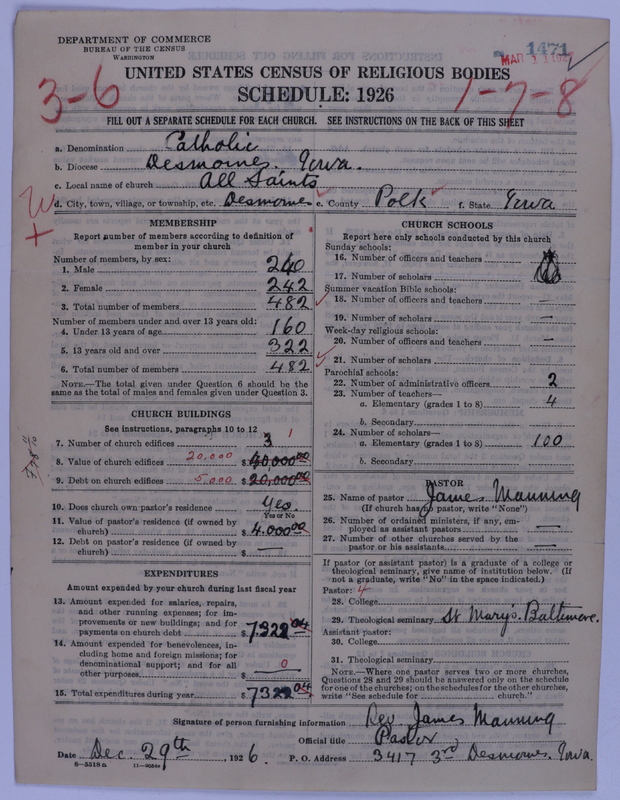 DEPARTMENT OF COMMERCE
BUREAU OF THE CENSUS
WASHINGTON
1471
MAR 11 192
UNITED STATES CENSUS OF RELIGIOUS BODIES
SCHEDULE: 1926
3-6
1-7-8
FILL OUT A SEPARATE SCHEDULE FOR EACH CHURCH. SEE INSTRUCTIONS ON THE BACK OF THIS SHEET
a. Denomination Catholic
b. Diocese Desmoines. Iowa.
c. Local name of church All Saints
d. City, town, village, or township, etc. Desmoines e. County Polk f. State Iowa
MEMBERSHIP
Report number of members according to definition of
member in your church
Number of members, by sex:
1. Male 240
2. Female 242
3. Total number of members 482
Number of members under and over 13 years old:
4. Under 13 years of age 160
5. 13 years old and over 322
6. Total number of members 482
NOTE.—The total given under Question 6 should be the
same as the total of males and females given under Question 3.
CHURCH BUILDINGS
See instructions, paragraphs 10 to 12
7. Number of church edifices 3 1
8. Value of church edifices 20,000 $40,000.00
9. Debt on church edifices 5,000 $20,000.00
10. Does church own pastor's residence Yes.
Yes or No
11. Value of pastor's residence (if owned by
church) $4.000.00
12. Debt on pastor's residence (if owned by
church) $ —
EXPENDITURES
Amount expended by your church during last fiscal year
13. Amount expended for salaries, repairs,
and other running expenses; for im-
provements or new buildings; and for
payments on church debt $7,322.04
14. Amount expended for benevolences, in-
cluding home and foreign missions; for
denominational support; and for all
other purposes 0 $ —
15. Total expenditures during year $7322.04
CHURCH SCHOOLS
Report here only schools conducted by this church
Sunday schools:
16. Number of officers and teachers
17. Number of scholars
Summer vacation Bible schools:
18. Number of officers and teachers —
19. Number of scholars —
Week-day religious schools:
20. Number of officers and teachers —
21. Number of scholars
Parochial schools:
22. Number of administrative officers 2
23. Number of teachers—
a. Elementary (grades 1 to 8) 4
b. Secondary
24. Number of scholars—
a. Elementary (grades 1 to 8) 100
b. Secondary
PASTOR
25. Name of pastor James Manning
(If church has no pastor, write "None")
26. Number of ordained ministers, if any, em-
ployed as assistant pastors —
27. Number of other churches served by the
pastor or his assistants —
If pastor (or assistant pastor) is a graduate of a college or
theological seminary, give name of institution below. (If
not a graduate, write "No" in the space indicated.)
Pastor: 4
28. College
29. Theological seminary St Mary's. Baltimore.
Assistant pastor:
30. College
31. Theological seminary
NOTE.—Where one pastor serves two or more churches,
Questions 28 and 29 should be answered only on the schedule
for one of the churches; on the schedules for the other churches,
write "See schedule for church."
Signature of person furnishing information Rev James Manning
Official title Pastor
Date Dec. 29th, 1926. P. O. Address 3417 3rd Desmoines. Iowa.
8-5518a 11-9058